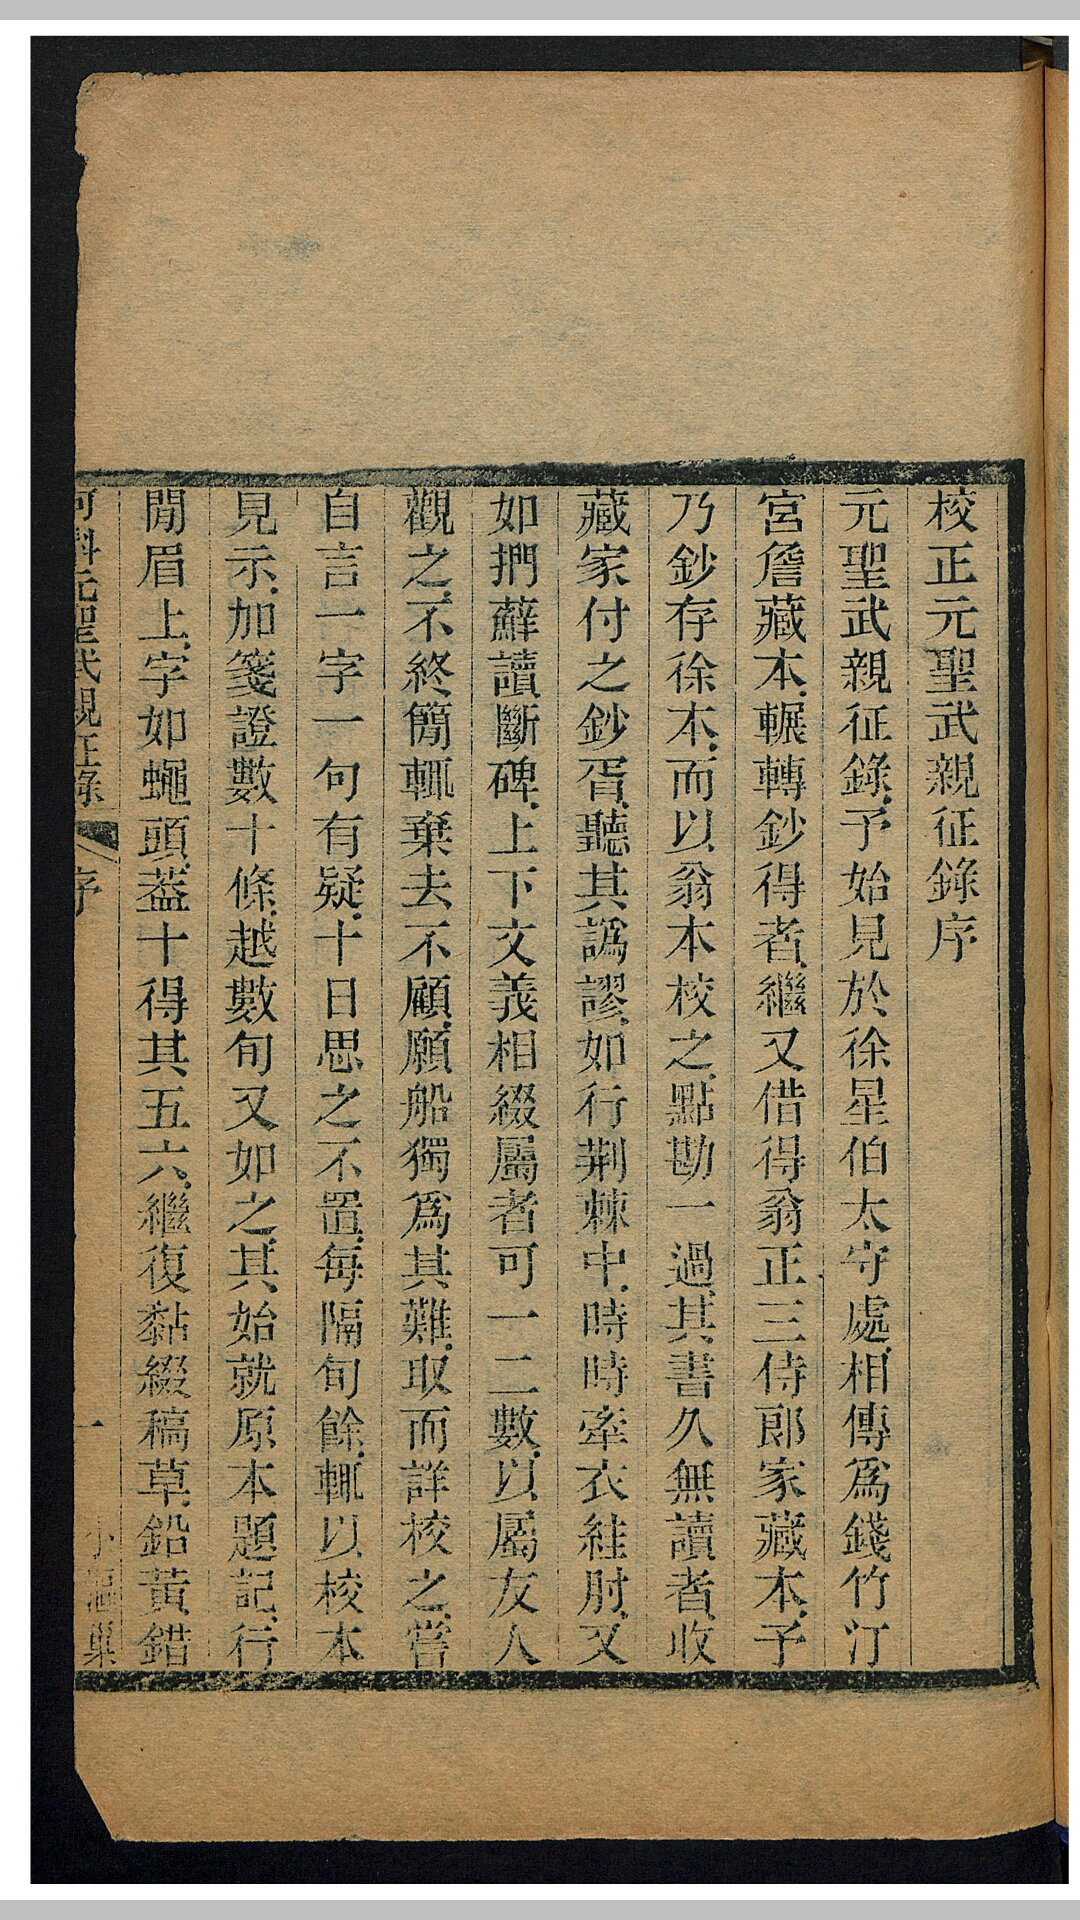 校正元聖武親征錄序
元聖武親征錄予始見於徐星伯太守處相傳爲錢竹汀
宮詹藏本輾轉鈔得者繼又借得翁正三侍郎家藏本予
乃鈔存徐本而以翁本校之點勘一過其書久無讀者收
藏家付之鈔胥聽其譌謬如行荆棘中時時牽衣絓肘又
如捫蘚讀斷碑上下文義相綴屬者可一二數以屬友人
觀之不終簡輒棄去不顧願船獨爲其難取而詳校之嘗
自言一字一句有疑十日思之不置每隔旬餘輒以校本
見示加箋證數十條越數旬又如之其始就原本題記行
閒眉上字如蠅頭葢十得其五六繼復黏綴稿草鉛黃錯
元聖武親征錄 序 一 小漚巢